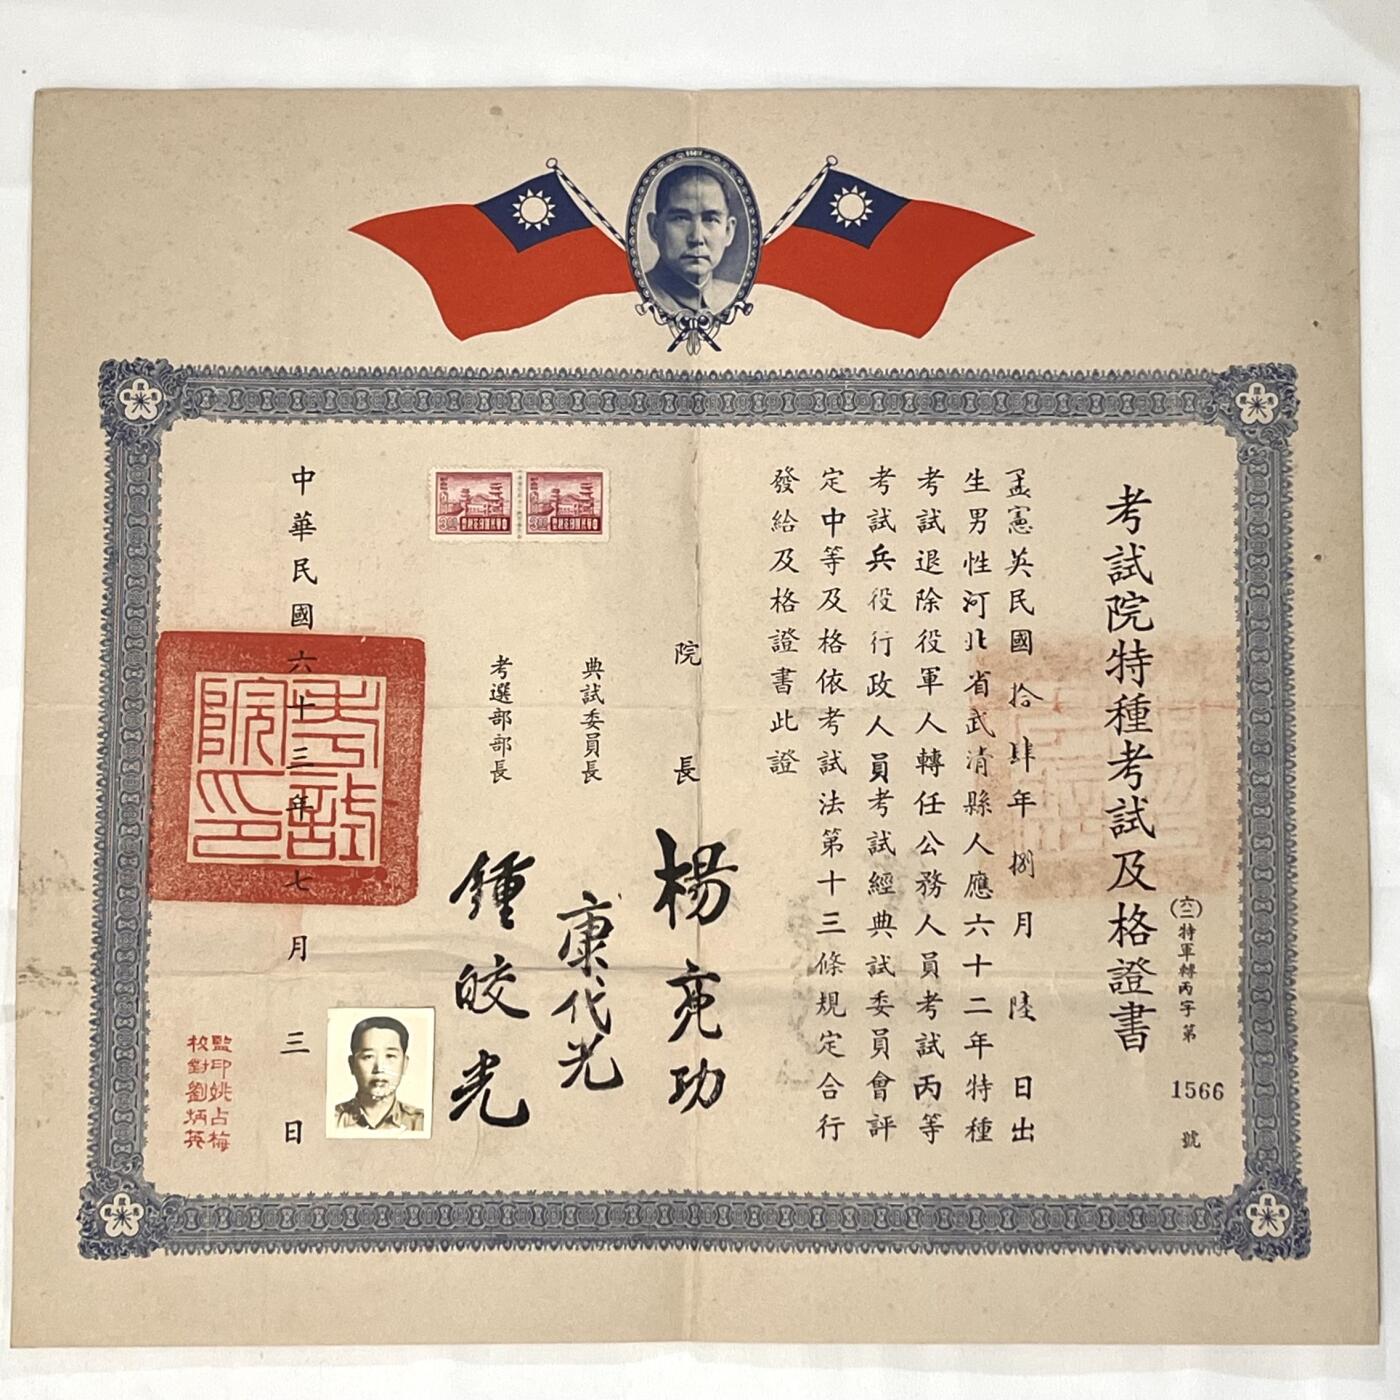 考試院特種考試及格證書
(六二)特軍轉丙字第1566號
孟憲英民國拾肆年捌月陸日出
生男性河北省武清縣人應六十二年特種
考試退除役軍人轉任公務人員考試丙等
考試兵役行政人員考試經典試委員會評
定中等及格依考試法第十三條規定合行
發給及格證書此證
院長 楊亮功
典試委員長 康代光
考選部部長 鍾皎光
中華民國六十三年七月三日
考試院印
監印姚占梅
校對劉炳英